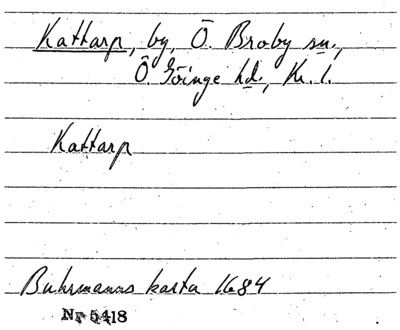 Kattarp, by, Ö. Broby sn.,
Ö. Göinge hd., Kr. l.
Kattarp
Buhrmanns karta 1684
Nr 5418